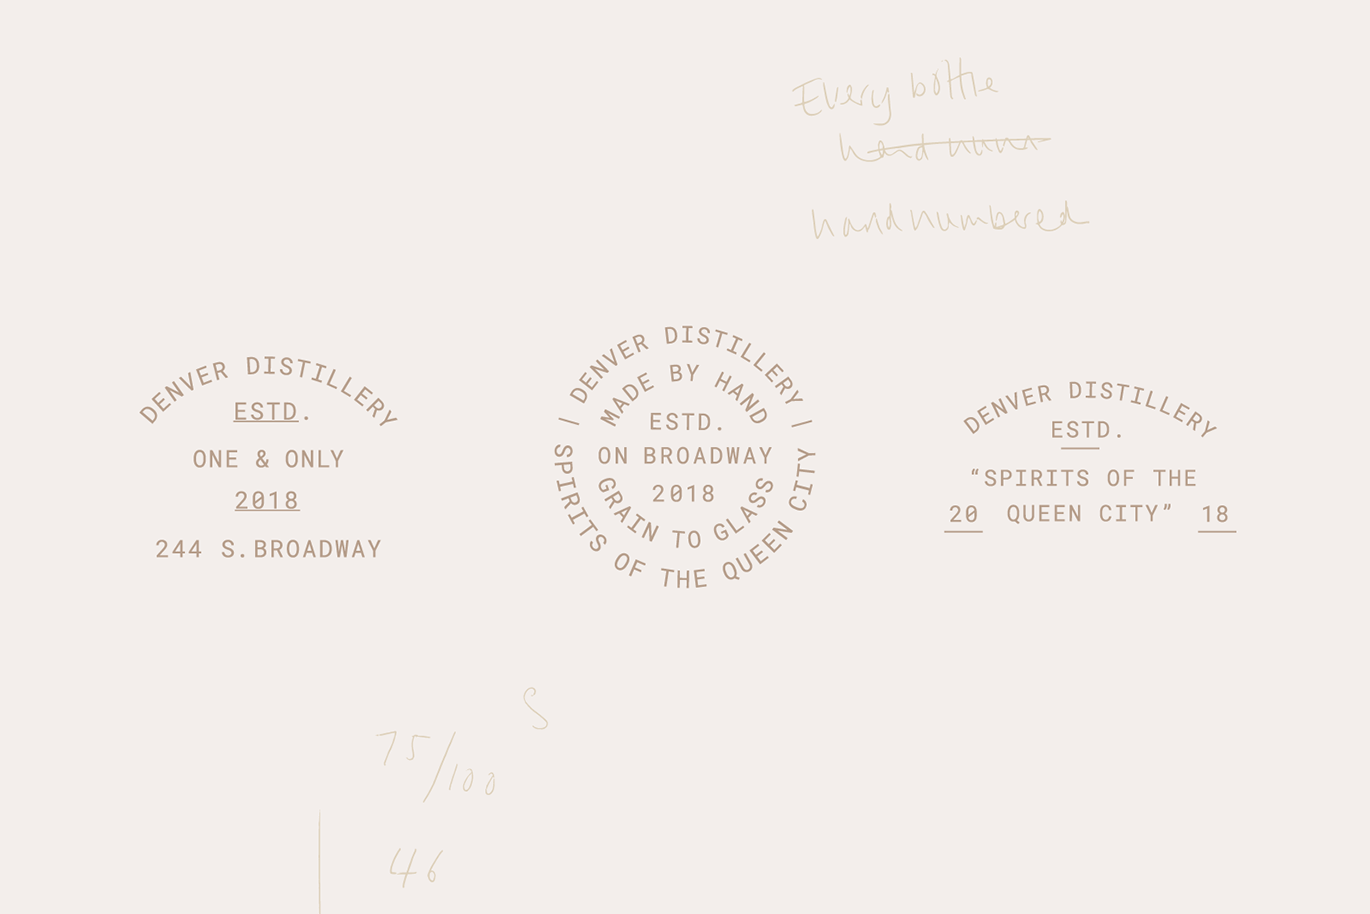 Every bottle
hand num
hand numbered
DENVER DISTILLERY
ESTD.
ONE & ONLY
2018
244 S. BROADWAY
| DENVER DISTILLERY |
MADE BY HAND
ESTD.
ON BROADWAY
2018
GRAIN TO GLASS
SPIRITS OF THE QUEEN CITY
DENVER DISTILLERY
ESTD.
“SPIRITS OF THE
20 QUEEN CITY” 18
S
75/100
46